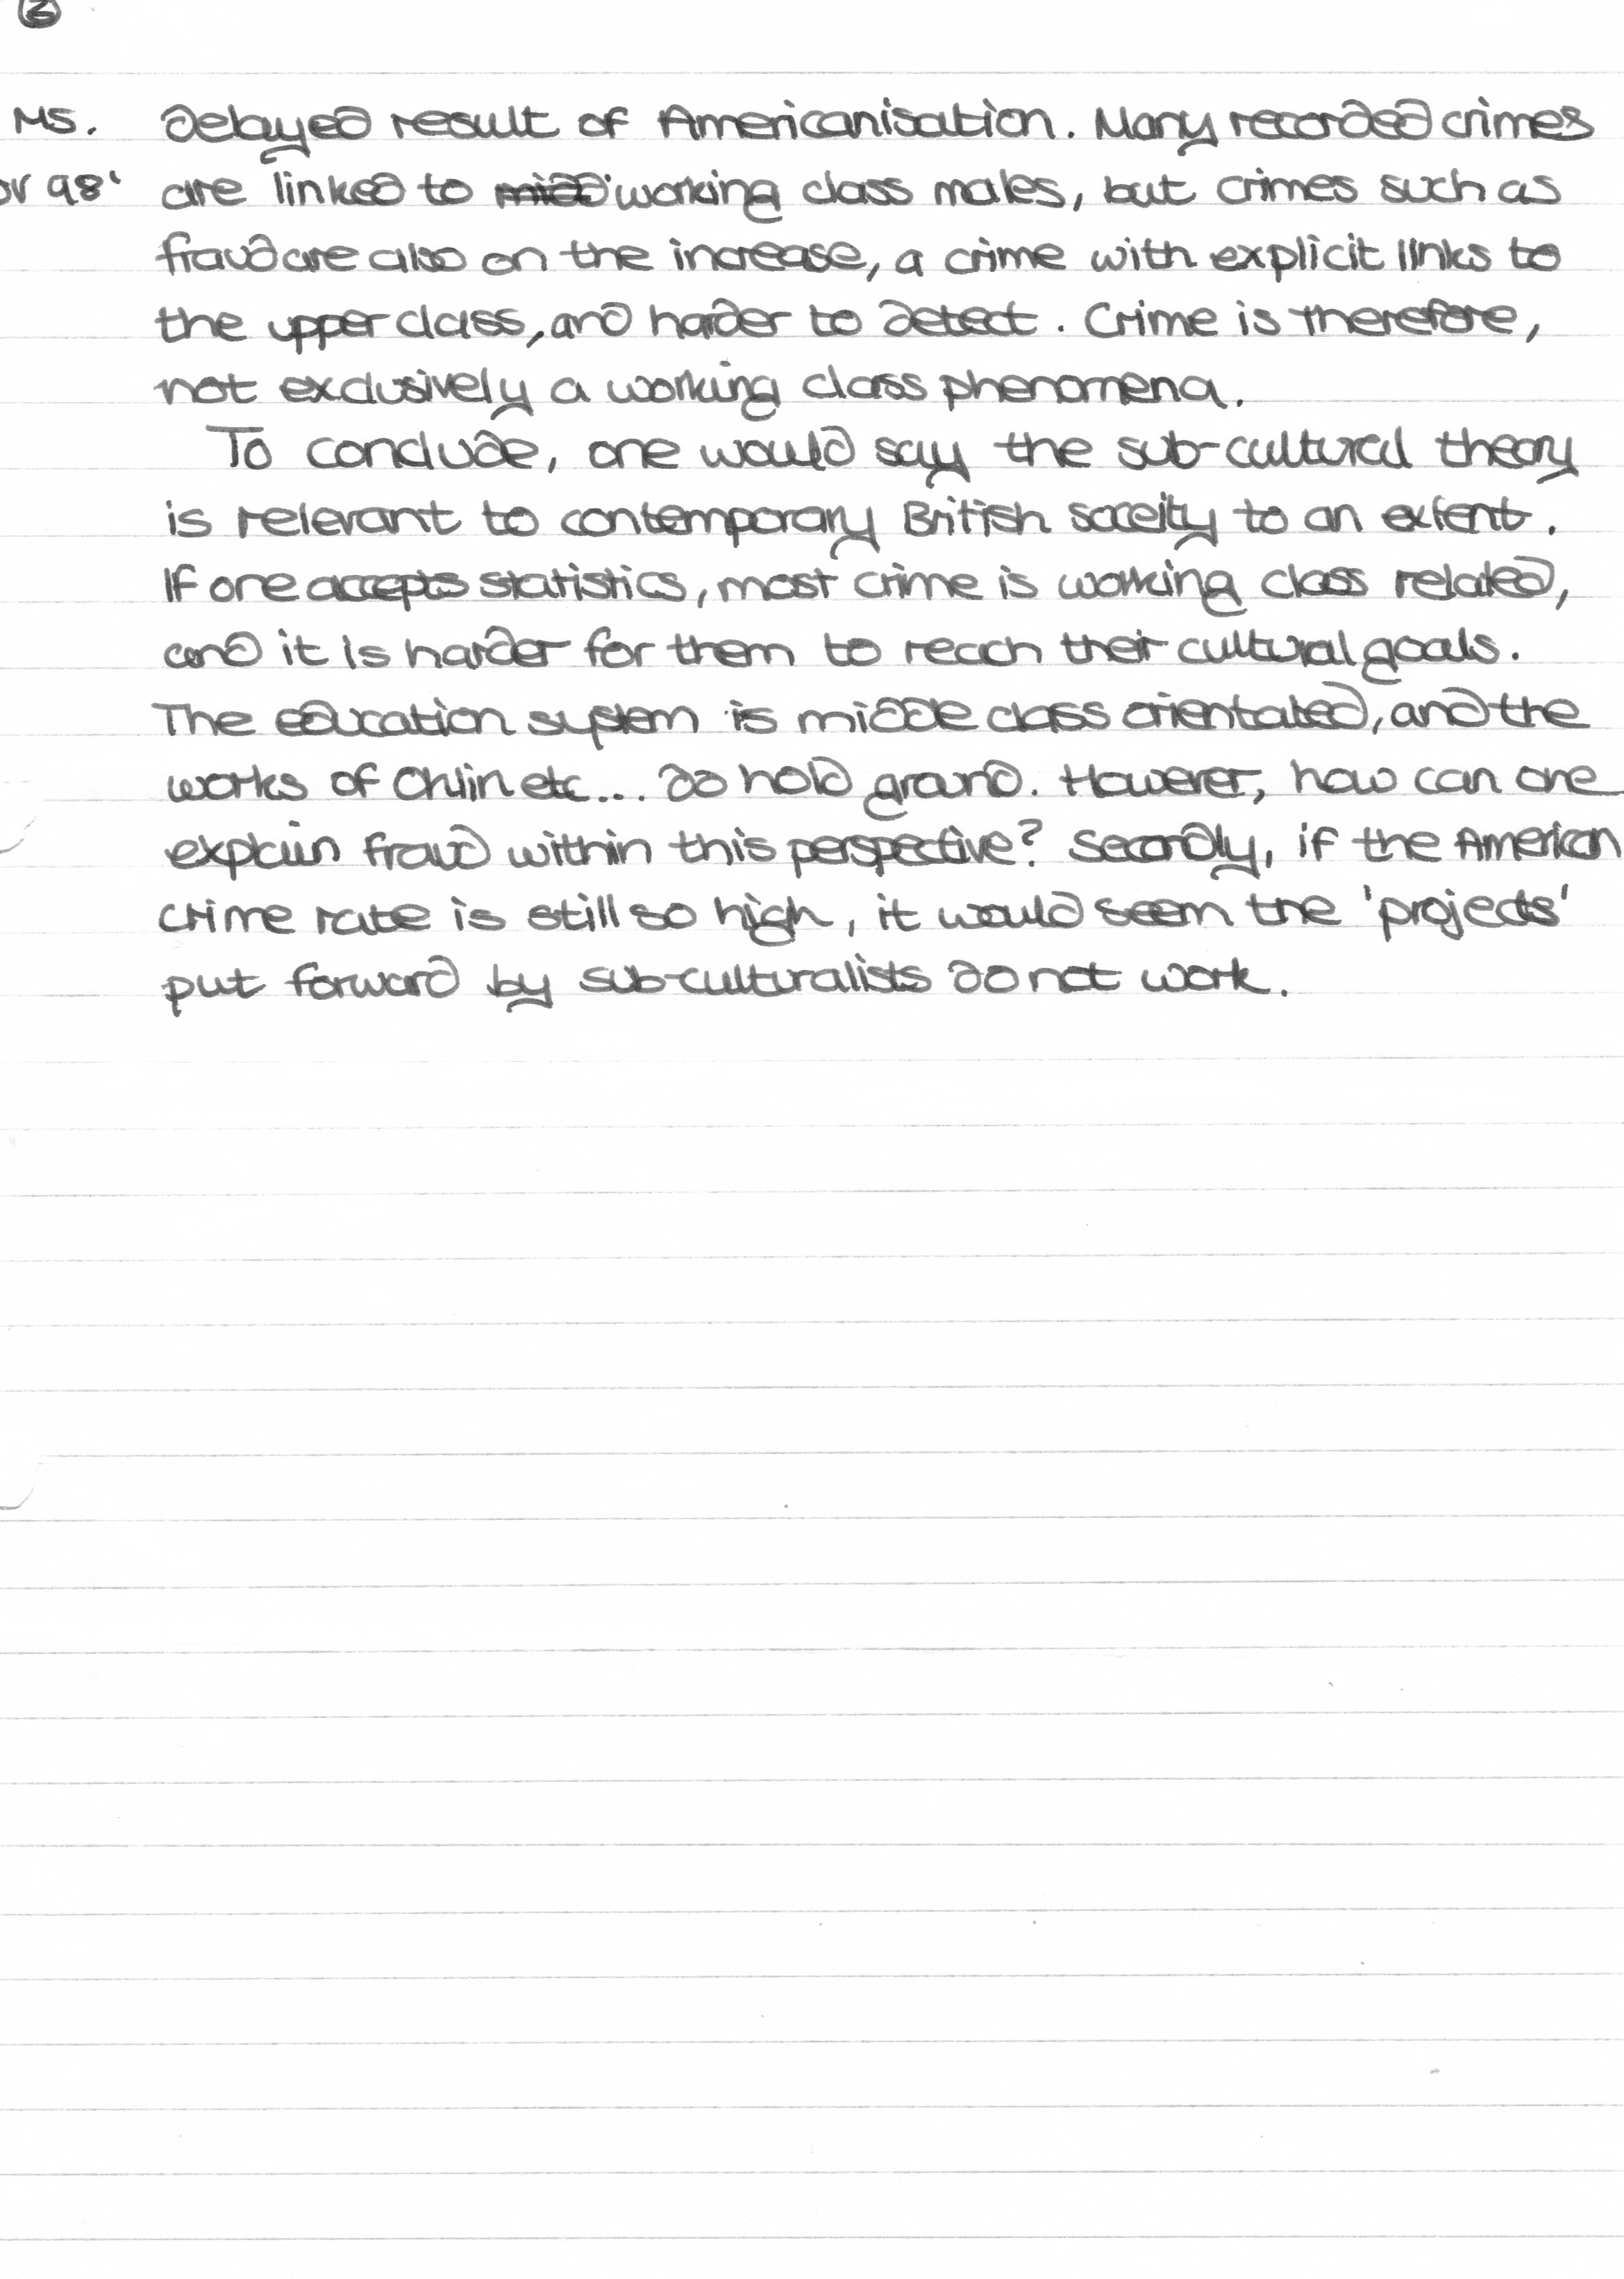 MS. delayed result of Americanisation. Many recorded crimes
98' are linked to working class males, but crimes such as
fraud are also on the increase, a crime with explicit links to
the upper class, and harder to detect. Crime is therefore,
not exclusively a working class phenomena.
To conclude, one would say the sub-cultural theory
is relevant to contemporary British soceity to an extent.
If one accepts statistics, most crime is working class related,
and it is harder for them to reach their cultural goals.
The education system is middle class orientated, and the
works of Ohlin etc... do hold ground. However, how can one
explain fraud within this perspective? Secondly, if the American
crime rate is still so high, it would seem the 'projects'
put forward by sub-culturalists do not work.